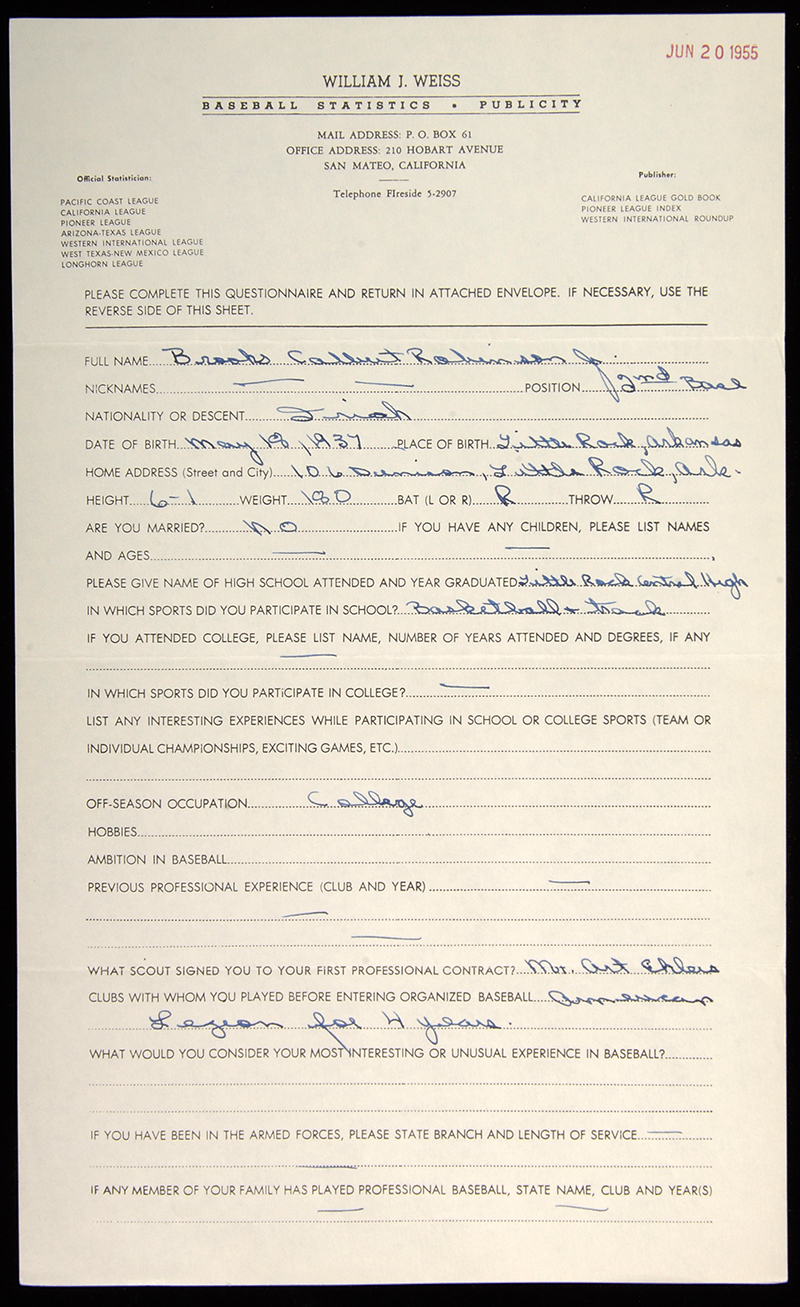 JUN 20 1955
WILLIAM J. WEISS
BASEBALL STATISTICS • PUBLICITY
MAIL ADDRESS: P. O. BOX 61
OFFICE ADDRESS: 210 HOBART AVENUE
SAN MATEO, CALIFORNIA
Telephone FIreside 5-2907
Official Statistician:
PACIFIC COAST LEAGUE
CALIFORNIA LEAGUE
PIONEER LEAGUE
ARIZONA-TEXAS LEAGUE
WESTERN INTERNATIONAL LEAGUE
WEST TEXAS-NEW MEXICO LEAGUE
LONGHORN LEAGUE
Publisher:
CALIFORNIA LEAGUE GOLD BOOK
PIONEER LEAGUE INDEX
WESTERN INTERNATIONAL ROUNDUP
PLEASE COMPLETE THIS QUESTIONNAIRE AND RETURN IN ATTACHED ENVELOPE. IF NECESSARY, USE THE
REVERSE SIDE OF THIS SHEET.
FULL NAME Brooks Calbert Robinson Jr.
NICKNAMES — — POSITION 2nd Base
NATIONALITY OR DESCENT Irish
DATE OF BIRTH May 18, 1937 PLACE OF BIRTH Little Rock, Arkansas
HOME ADDRESS (Street and City) Denison, Little Rock, Ark.
HEIGHT 6-1 WEIGHT 180 BAT (L OR R) R THROW R
ARE YOU MARRIED? NO IF YOU HAVE ANY CHILDREN, PLEASE LIST NAMES
AND AGES — —
PLEASE GIVE NAME OF HIGH SCHOOL ATTENDED AND YEAR GRADUATED Little Rock Central High
IN WHICH SPORTS DID YOU PARTICIPATE IN SCHOOL? Basketball + track
IF YOU ATTENDED COLLEGE, PLEASE LIST NAME, NUMBER OF YEARS ATTENDED AND DEGREES, IF ANY
—
IN WHICH SPORTS DID YOU PARTICIPATE IN COLLEGE? —
LIST ANY INTERESTING EXPERIENCES WHILE PARTICIPATING IN SCHOOL OR COLLEGE SPORTS (TEAM OR
INDIVIDUAL CHAMPIONSHIPS, EXCITING GAMES, ETC.)
OFF-SEASON OCCUPATION College
HOBBIES
AMBITION IN BASEBALL
PREVIOUS PROFESSIONAL EXPERIENCE (CLUB AND YEAR) —
—
—
WHAT SCOUT SIGNED YOU TO YOUR FIRST PROFESSIONAL CONTRACT? Mr. Art Ehlers
CLUBS WITH WHOM YOU PLAYED BEFORE ENTERING ORGANIZED BASEBALL American
Legion for 4 years.
WHAT WOULD YOU CONSIDER YOUR MOST INTERESTING OR UNUSUAL EXPERIENCE IN BASEBALL?
IF YOU HAVE BEEN IN THE ARMED FORCES, PLEASE STATE BRANCH AND LENGTH OF SERVICE —
—
IF ANY MEMBER OF YOUR FAMILY HAS PLAYED PROFESSIONAL BASEBALL, STATE NAME, CLUB AND YEAR(S)
— —